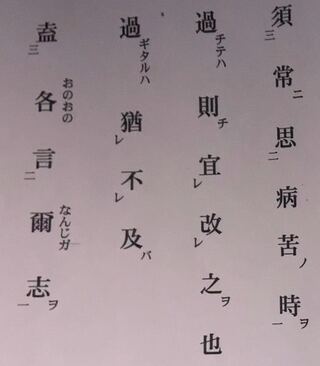 須三常ニ思二病苦ノ時ヲ一
過チテハ則チ宜レ改レ之ヲ也
過ギタルハ猶レ不レ及バ
盍三各おのおの言二爾なんじガ志ヲ一